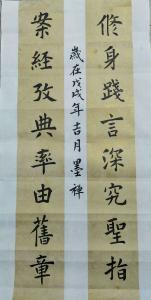 修身踐言深究聖指
案經攷典率由舊章
歲在戊戌年吉月墨禪